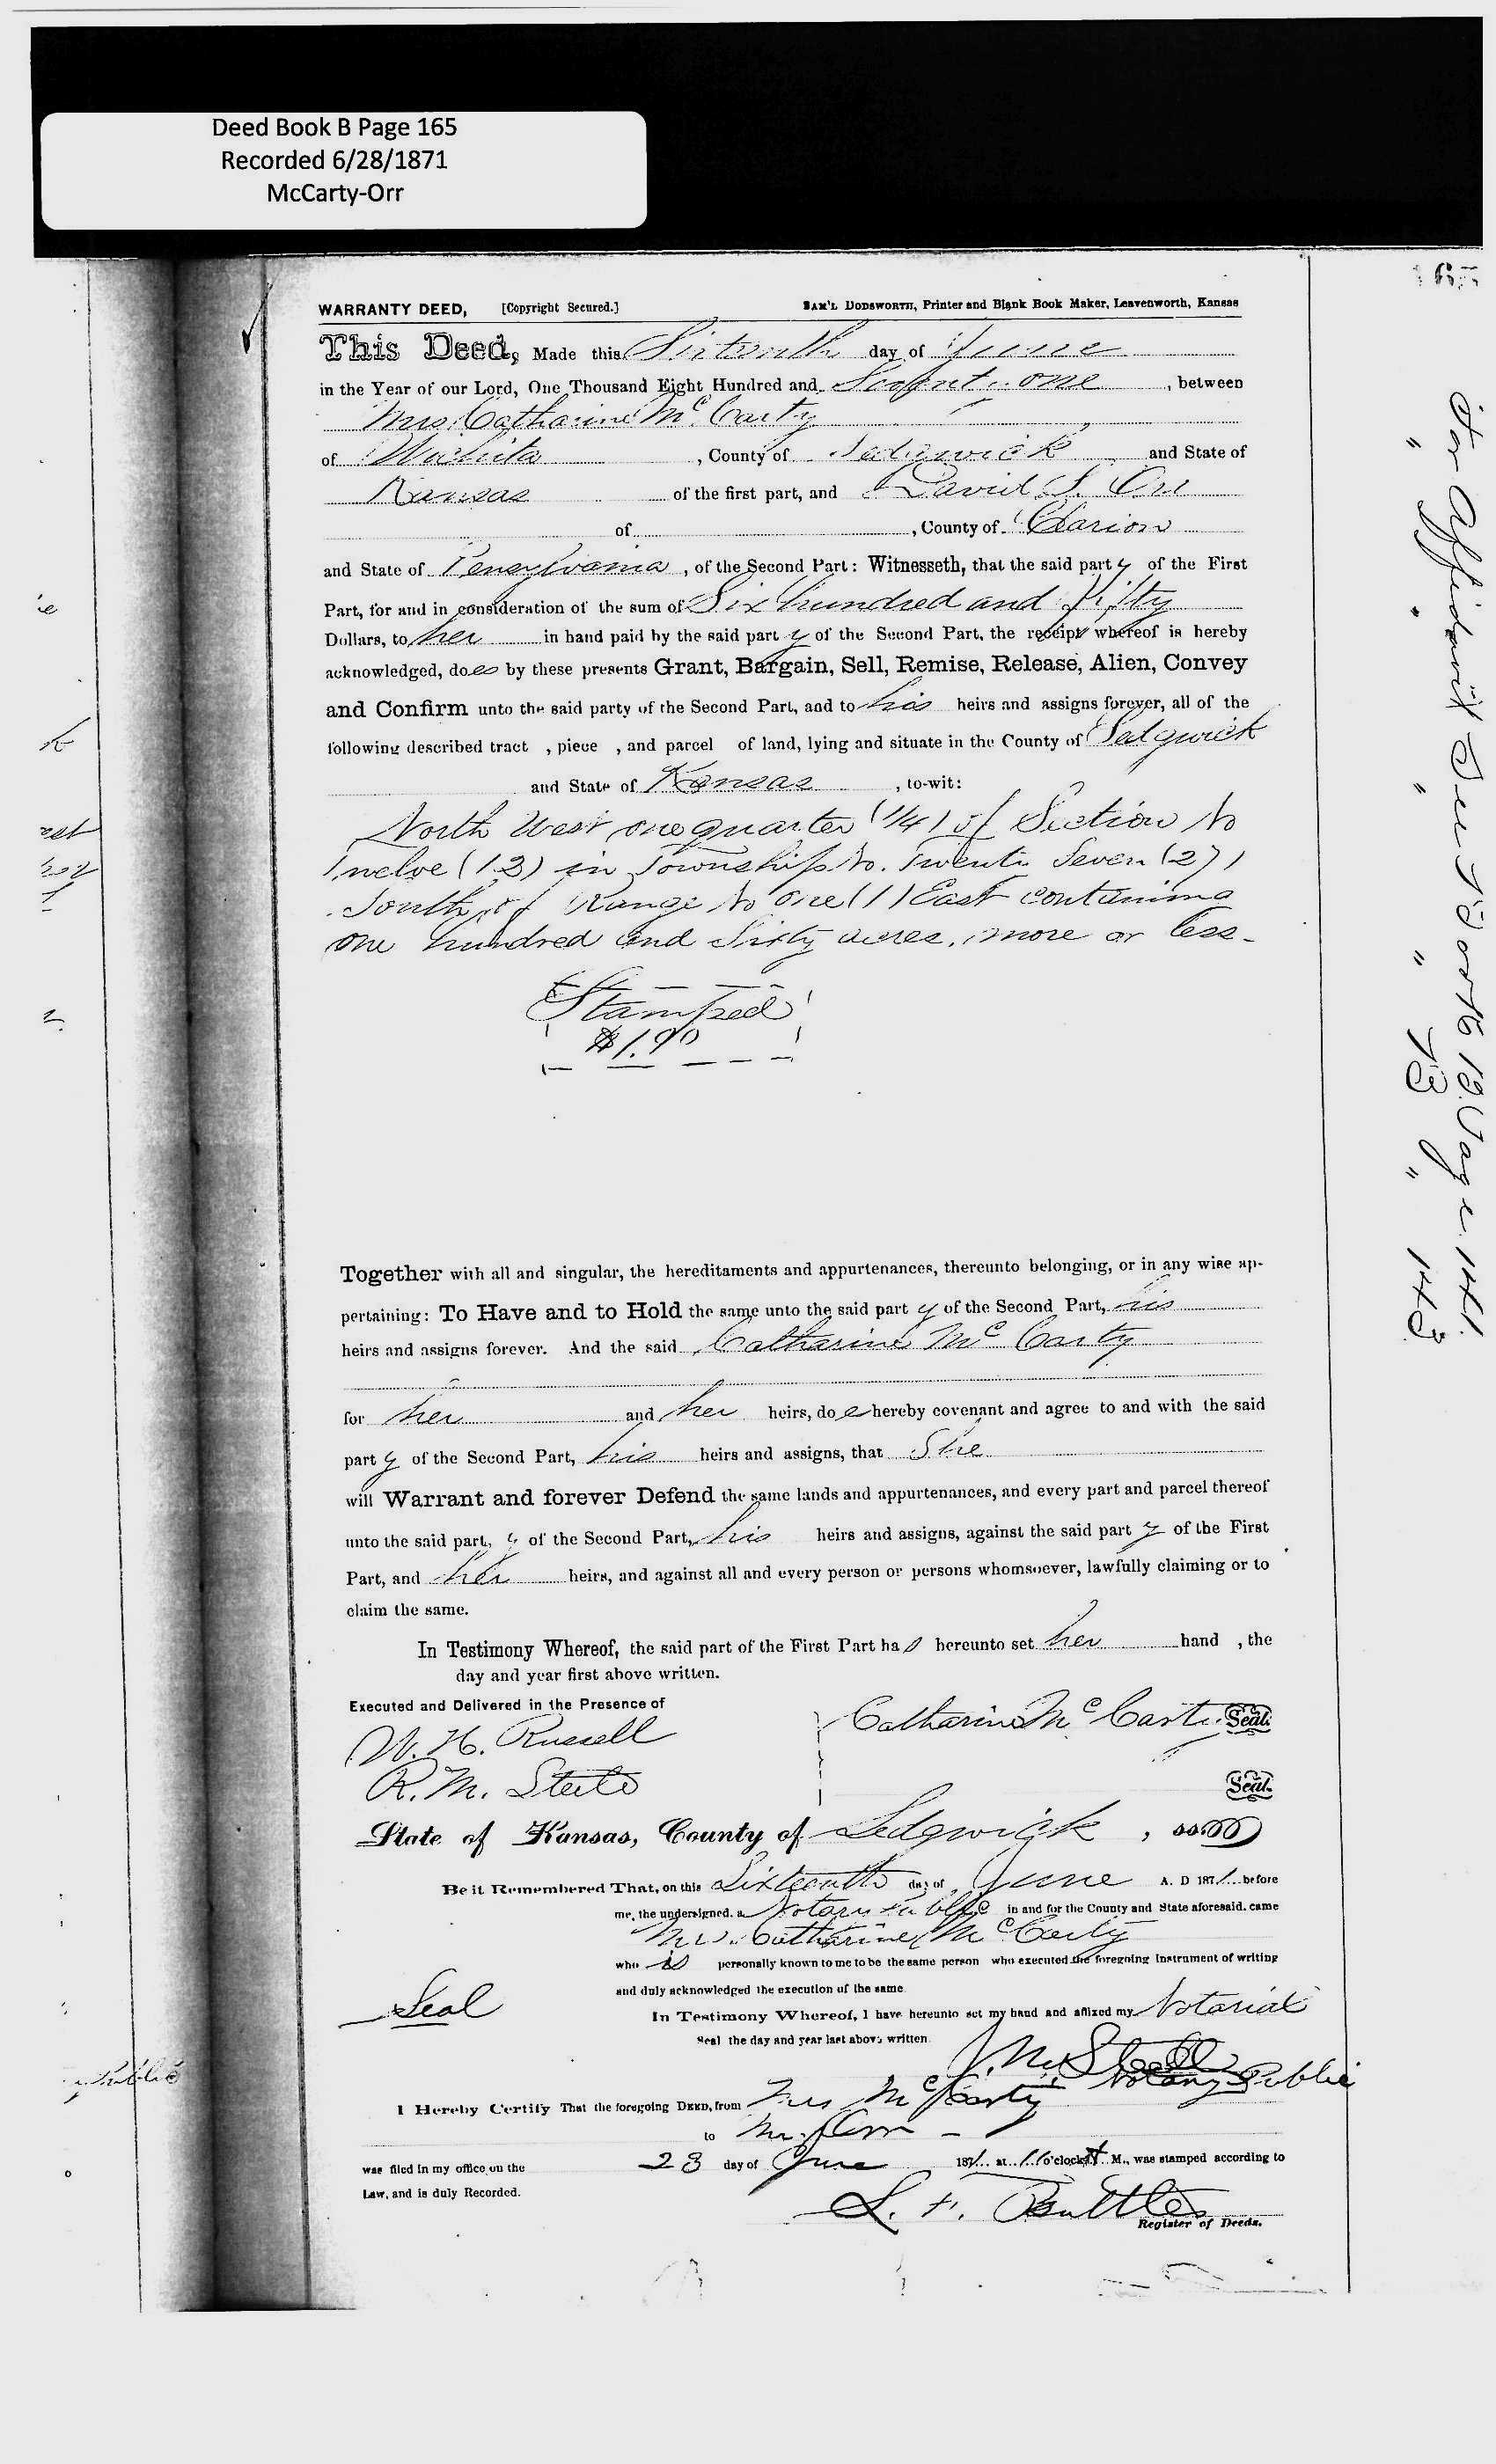 Deed Book B Page 165
Recorded 6/28/1871
McCarty-Orr
WARRANTY DEED, [Copyright Secured.] SAM'L DODSWORTH, Printer and Blank Book Maker, Leavenworth, Kansas
This Deed, Made this Sixteenth day of June
in the Year of our Lord, One Thousand Eight Hundred and Seventy one, between
Mrs. Catharine McCarty
of Wichita, County of Sedgwick and State of
Kansas of the first part, and David S. Orr
of , County of Clarion
and State of Pensylvania, of the Second Part: Witnesseth, that the said party of the First
Part, for and in consideration of the sum of Six hundred and fifty
Dollars, to her in hand paid by the said party of the Second Part, the receipt whereof is hereby
acknowledged, does by these presents Grant, Bargain, Sell, Remise, Release, Alien, Convey
and Confirm unto the said party of the Second Part, and to his heirs and assigns forever, all of the
following described tract , piece , and parcel of land, lying and situate in the County of Sedgwick
and State of Kansas , to-wit:
North West one quarter (1/4) of Section No
Twelve (12) in Township No. Twenty Seven (27)
South of Range No One (1) East containing
one hundred and Sixty acres, more or less.
Stamped
$1.00
Together with all and singular, the hereditaments and appurtenances, thereunto belonging, or in any wise ap-
pertaining: To Have and to Hold the same unto the said party of the Second Part, his
heirs and assigns forever. And the said Catharine McCarty
for her and her heirs, do e hereby covenant and agree to and with the said
party of the Second Part, his heirs and assigns, that She
will Warrant and forever Defend the same lands and appurtenances, and every part and parcel thereof
unto the said part, y of the Second Part, his heirs and assigns, against the said party of the First
Part, and her heirs, and against all and every person or persons whomsoever, lawfully claiming or to
claim the same.
In Testimony Whereof, the said part of the First Part has hereunto set her hand , the
day and year first above written.
Executed and Delivered in the Presence of
W. H. Russell Catharine McCarty Seal.
R. M. Steele Seal.
State of Kansas, County of Sedgwick, ss.
Be it Remembered That, on this Sixteenth day of June A. D 1871 before
me, the undersigned, a Notary Public in and for the County and State aforesaid. came
Mrs. Catharine McCarty
who is personally known to me to be the same person who executed the foregoing Instrument of writing
and duly acknowledged the execution of the same
Seal In Testimony Whereof, I have hereunto set my hand and affixed my Notarial
Seal the day and year last above written.
Notary Public
I Hereby Certify That the foregoing DEED, from Mrs McCarty
to Mr. Orr
was filed in my office on the 28 day of June 1871 at 11 o'clock A M., was stamped according to
Law, and is duly Recorded.
Buttles
Register of Deeds.
For Affidavit See Book 13 Page 141.
" " " " 73 " 143